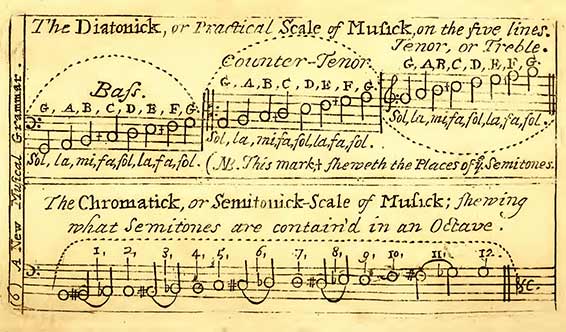 (6) A New Musical Grammar.
The Diatonick, or Practical Scale of Musick, on the five lines.
Bass.
G, A, B, C, D, E, F, G.
Sol, la, mi, fa, sol, la, fa, sol.
Counter-Tenor
G, A, B, C, D, E, F, G.
Sol, la, mi, fa, sol, la, fa, sol.
Tenor, or Treble.
G, A, B, C, D, E, F, G.
Sol, la, mi, fa, sol, la, fa, sol.
(N. This mark sheweth the Places of yͤ. Semitones.
The Chromatick, or Semitonick-Scale of Musick; shewing
what Semitones are contain'd in an Octave.
1, 2, 3, 4, 5, 6, 7, 8, 9, 10, 11, 12.
&c.